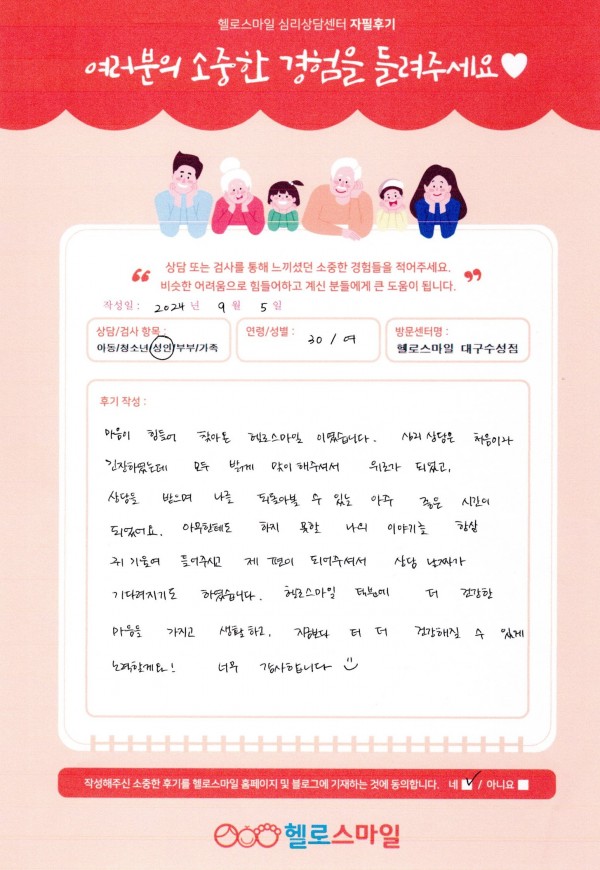 헬로스마일 심리상담센터 자필후기
여러분의 소중한 경험을 들려주세요♥
상담 또는 검사를 통해 느끼셨던 소중한 경험들을 적어주세요.
비슷한 어려움으로 힘들어하고 계신 분들에게 큰 도움이 됩니다.
작성일 : 2024 년 9 월 5 일
상담/검사 항목 :
아동/청소년/성인/부부/가족
연령/성별 :
30 / 여
방문센터명 :
헬로스마일 대구수성점
후기 작성 :
마음이 힘들어 찾아온 헬로스마일 이었습니다. 심리 상담은 처음이라
긴장하였는데 모두 밝게 맞이 해주셔서 위로가 되었고,
상담을 받으며 나를 되돌아볼 수 있는 아주 좋은 시간이
되었어요. 아무한테도 하지 못할 나의 이야기를 항상
귀 기울여 들어주시고 제 편이 되어주셔서 상담 날짜가
기다려지기도 하였습니다. 헬로스마일 덕분에 더 건강한
마음을 가지고 생활 하고, 지금보다 더 더 건강해질 수 있게
노력할게요! 너무 감사합니다
작성해주신 소중한 후기를 헬로스마일 홈페이지 및 블로그에 기재하는 것에 동의합니다. 네 / 아니요
헬로스마일